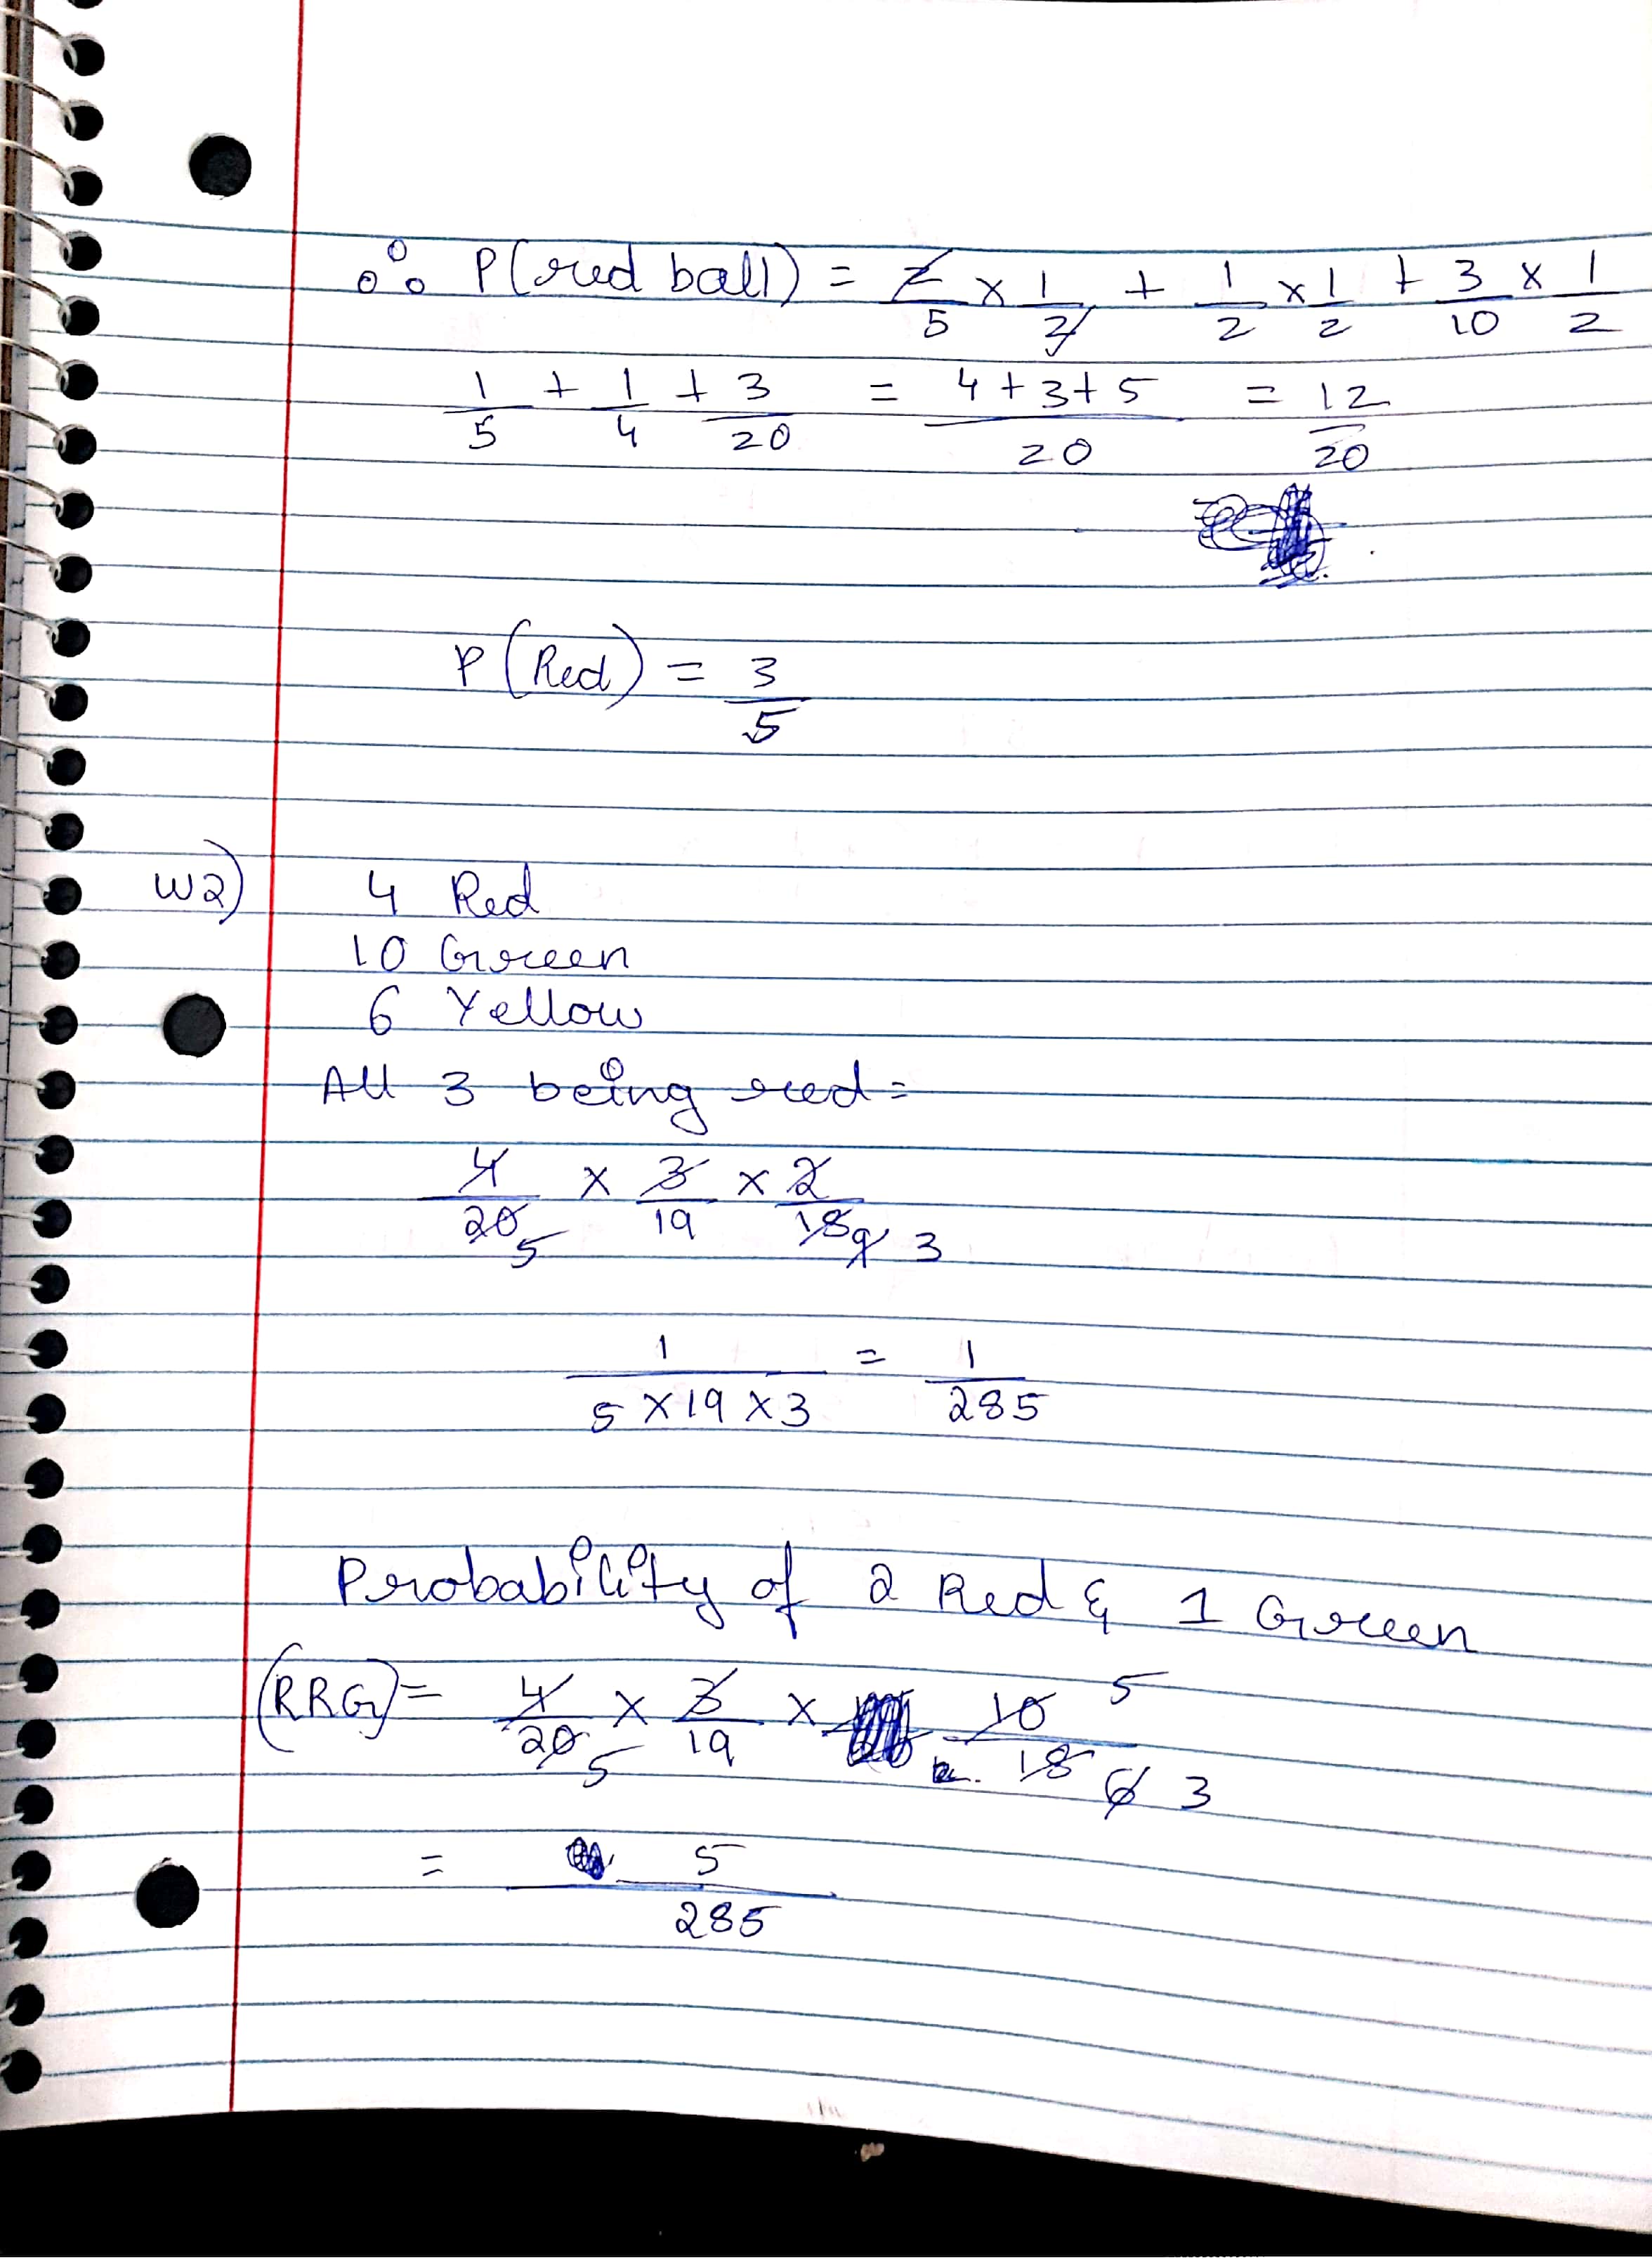 ∴ P(red ball) = 2/5 × 1/2 + 1/2 × 1/2 + 3/10 × 1/2
1/5 + 1/4 + 3/20 = 4+3+5/20 = 12/20
P(Red) = 3/5
W2) 4 Red
10 Green
6 Yellow
All 3 being red=
4/20 5 × 3/19 × 2/18 9 3
1/5×19×3 = 1/285
Probability of 2 Red & 1 Green
(RRG)= 4/20 5 × 3/19 × 10 5/18 6 3
= 5/285